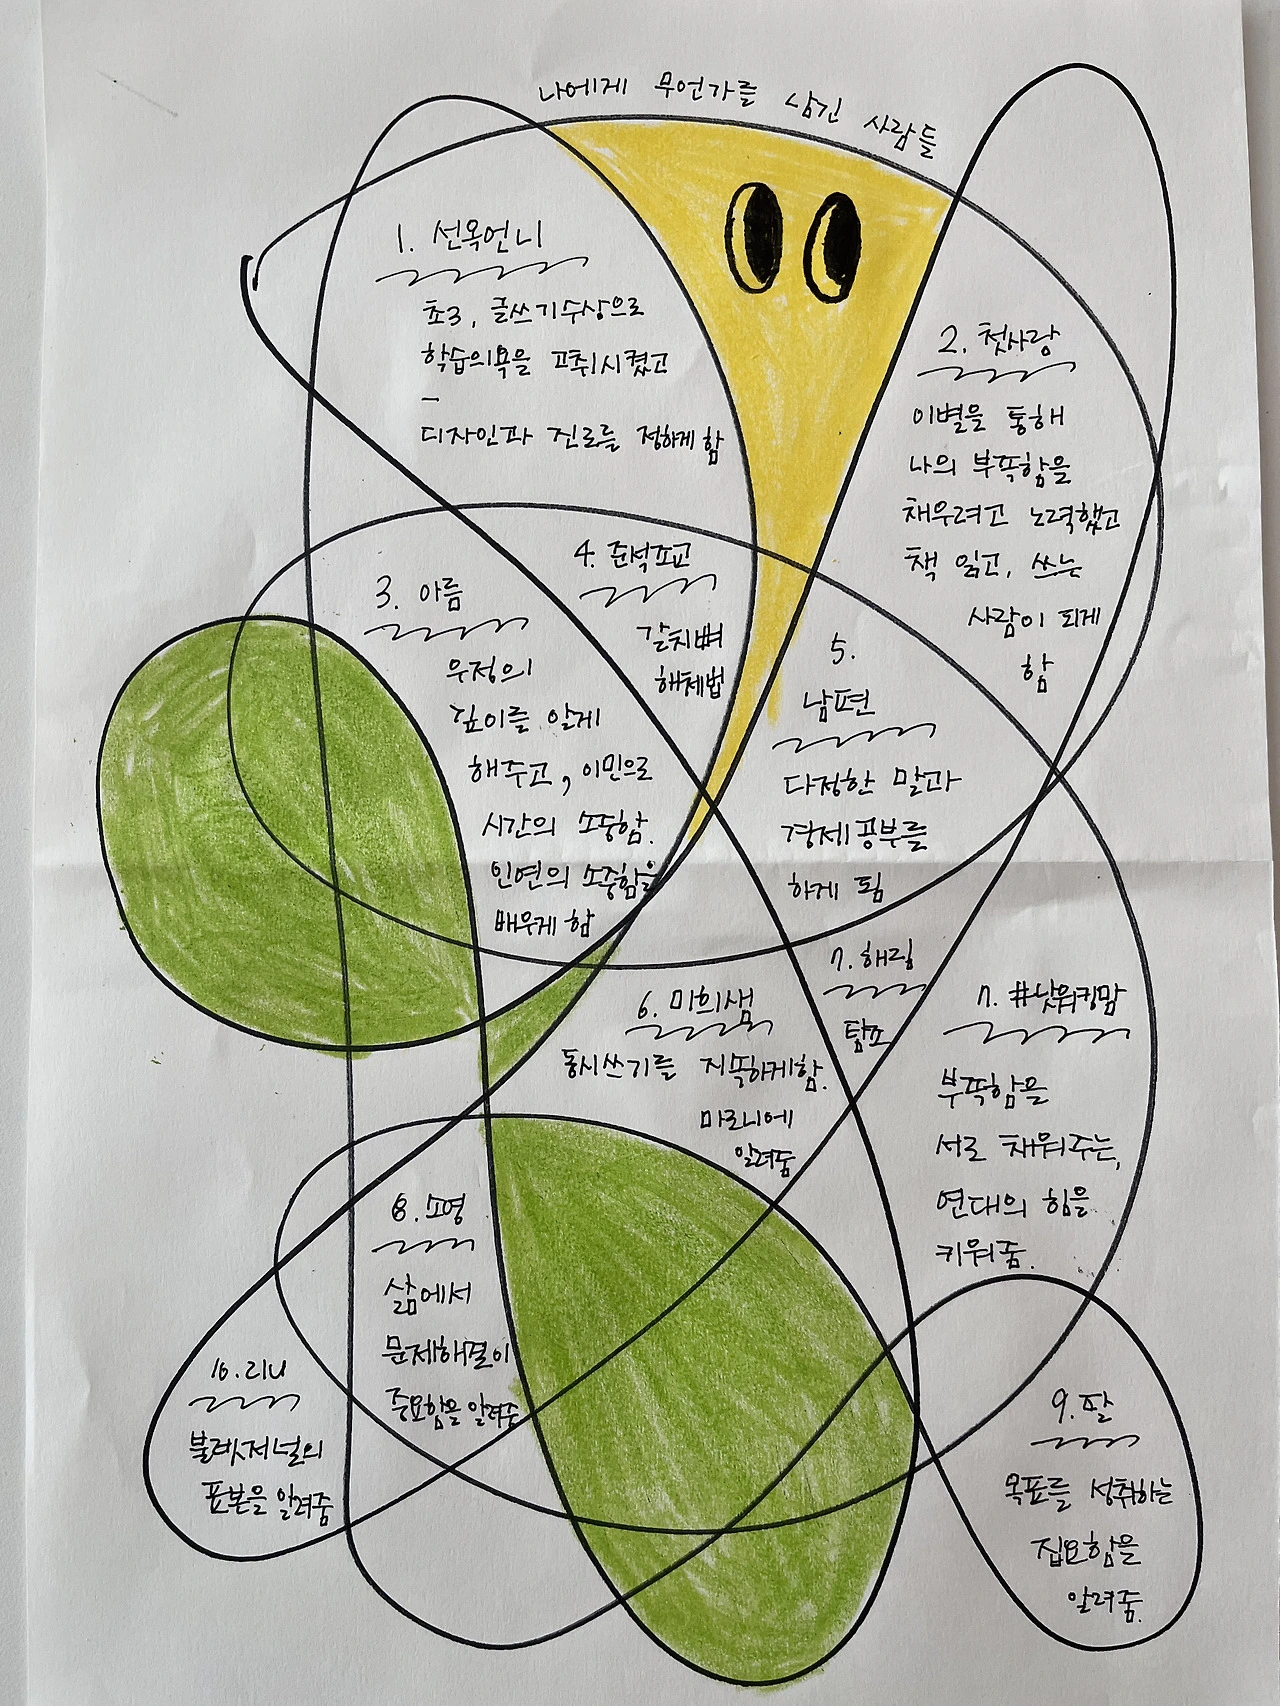 나에게 무언가를 남긴 사람들
1. 선옥언니
초3, 글쓰기수상으로
학습의욕을 고취시켰고
-
디자인과 진로를 정하게 함
2. 첫사랑
이별을 통해
나의 부족함을
채우려고 노력했고
책 읽고, 쓰는
사람이 되게
함
3. 아름
우정의
깊이를 알게
해주고, 이민으로
시간의 소중함.
인연의 소중함을
배우게 함
4. 준석조교
갈치뼈
해체법
5.
남편
다정한 말과
경제공부를
하게 됨
6. 미희샘
동시쓰기를 지속하게함.
마로니에
알려줌
7. 해림
탈죠
7. #낫워킹맘
부족함을
서로 채워주는,
연대의 힘을
키워줌.
8. 소영
삶에서
문제해결이
중요함을 알려줌
9. 팔
목표를 성취하는
집요함을
알려줌.
10. 리니
불렛저널의
표본을 알려줌